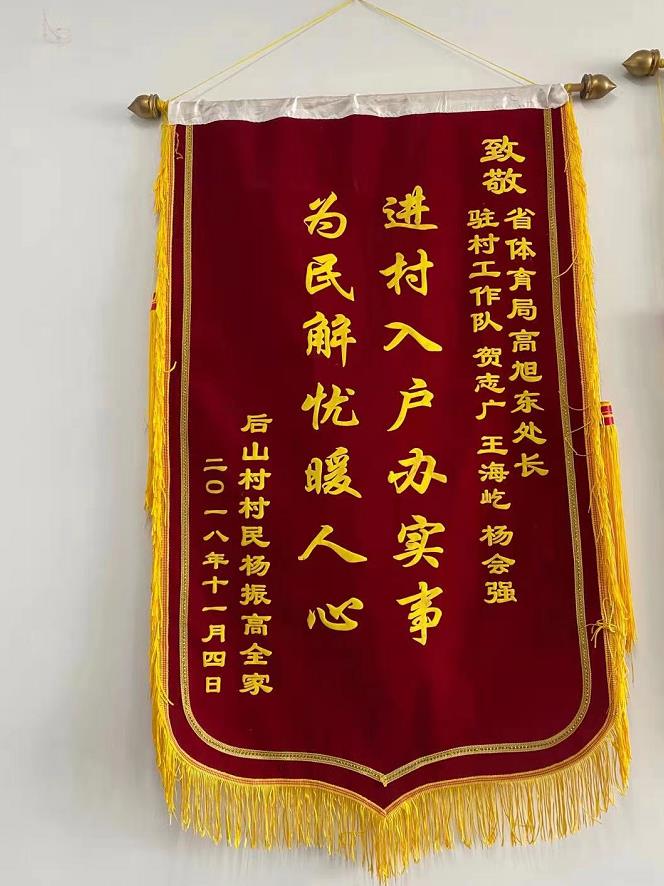 致敬
省体育局高旭东处长
驻村工作队 贺志广 王海屹 杨会强
进村入户办实事
为民解忧暖人心
后山村村民杨振高全家
二〇一八年十一月四日